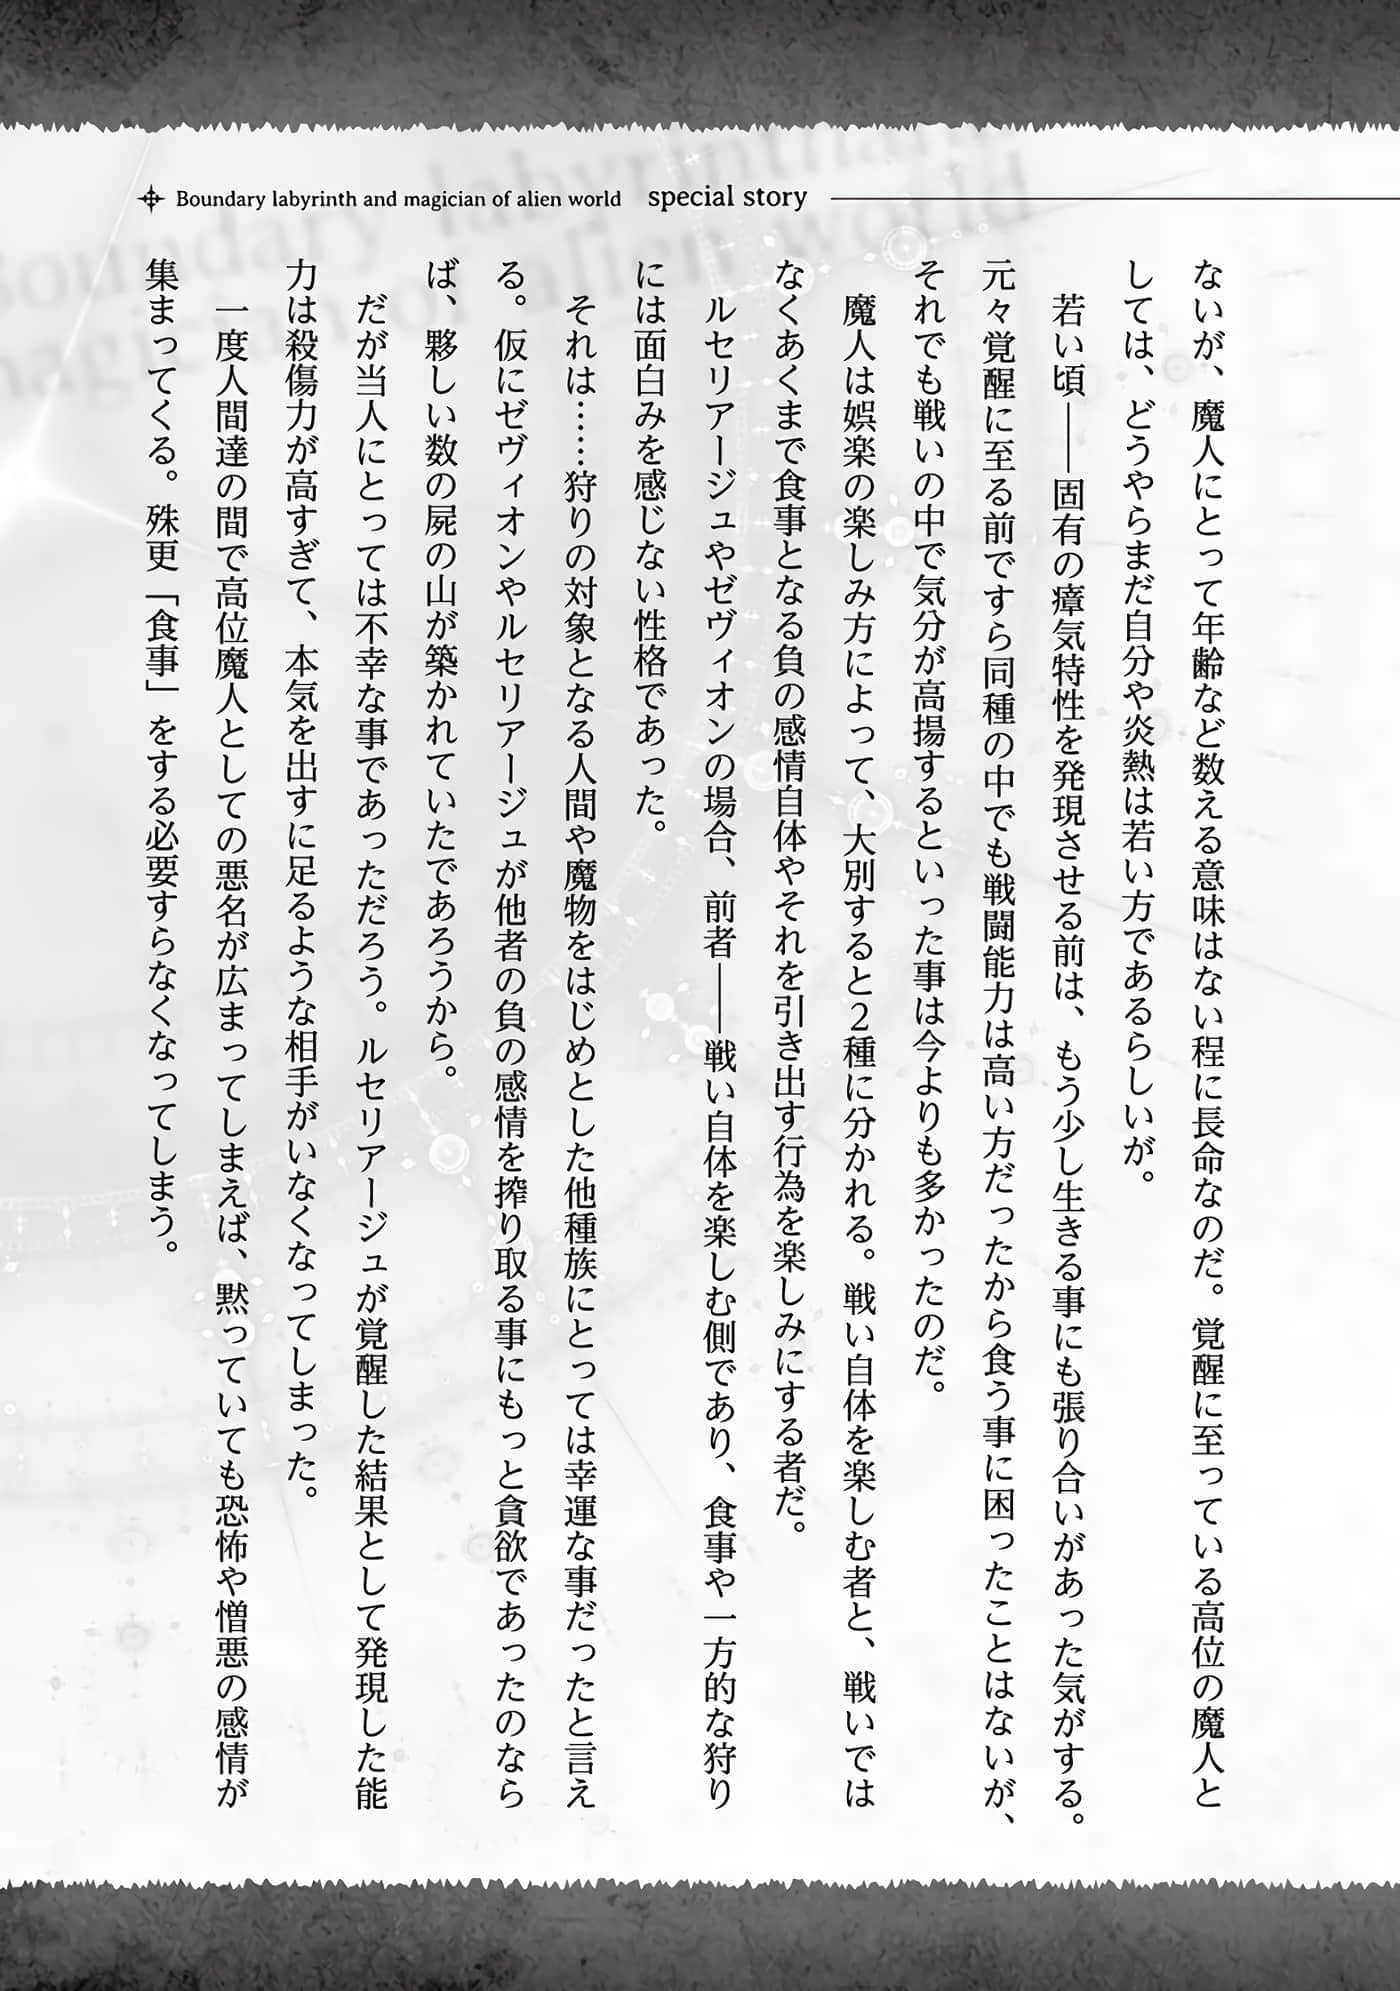 Boundary labyrinth and magician of alien world special story
ないが、魔人にとって年齢など数える意味はない程に長命なのだ。覚醒に至っている高位の魔人と
しては、どうやらまだ自分や炎熱は若い方であるらしいが。
若い頃――固有の瘴気特性を発現させる前は、もう少し生きる事にも張り合いがあった気がする。
元々覚醒に至る前ですら同種の中でも戦闘能力は高い方だったから食う事に困ったことはないが、
それでも戦いの中で気分が高揚するといった事は今よりも多かったのだ。
魔人は娯楽の楽しみ方によって、大別すると2種に分かれる。戦い自体を楽しむ者と、戦いでは
なくあくまで食事となる負の感情自体やそれを引き出す行為を楽しみにする者だ。
ルセリアージュやゼヴィオンの場合、前者――戦い自体を楽しむ側であり、食事や一方的な狩り
には面白みを感じない性格であった。
それは……狩りの対象となる人間や魔物をはじめとした他種族にとっては幸運な事だったと言え
る。仮にゼヴィオンやルセリアージュが他者の負の感情を搾り取る事にもっと貪欲であったのなら
ば、夥しい数の屍の山が築かれていたであろうから。
だが当人にとっては不幸な事であっただろう。ルセリアージュが覚醒した結果として発現した能
力は殺傷力が高すぎて、本気を出すに足るような相手がいなくなってしまった。
一度人間達の間で高位魔人としての悪名が広まってしまえば、黙っていても恐怖や憎悪の感情が
集まってくる。殊更「食事」をする必要すらなくなってしまう。
Boundary labyrinth and
magician of alien world